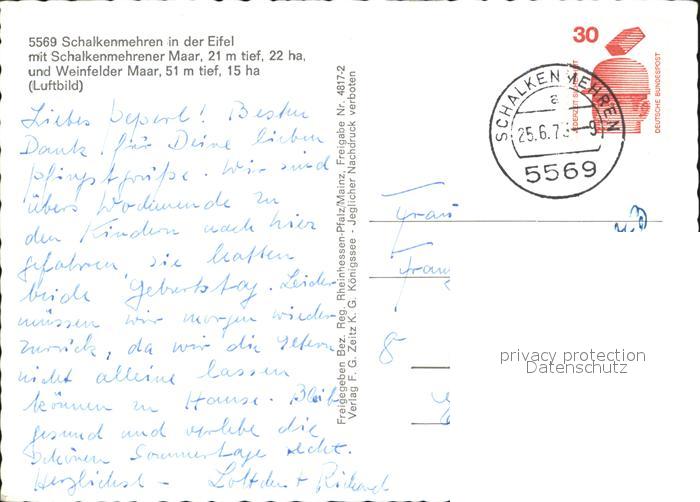 5569 Schalkenmehren in der Eifel
mit Schalkenmehrener Maar, 21 m tief, 22 ha,
und Weinfelder Maar, 51 m tief, 15 ha
(Luftbild)
Liebes Peperl! Besten
Dank für Deine lieben
Pfingstgrüße. Wir sind
übers Wochenende zu
den Kindern nach hier
gefahren, sie hatten
beide Geburtstag. Leider
müssen wir morgen wieder
zurück, da wir die Eltern
nicht alleine lassen
können zu Hause. Bleib
gesund und verlebe die
schönen Sommertage recht.
Herzlichst - Lottchen + Richard
Freigegeben Bez. Reg. Rheinhessen-Pfalz/Mainz, Freigabe Nr. 4817-2
Verlag F. G. Zeitz K. G. Königssee - Jeglicher Nachdruck verboten
30
JEDERZEIT SICHERHEIT
DEUTSCHE BUNDESPOST
SCHALKENMEHREN
a
25.6.73-9
5569
Frau
Fran
8
privacy protection
Datenschutz